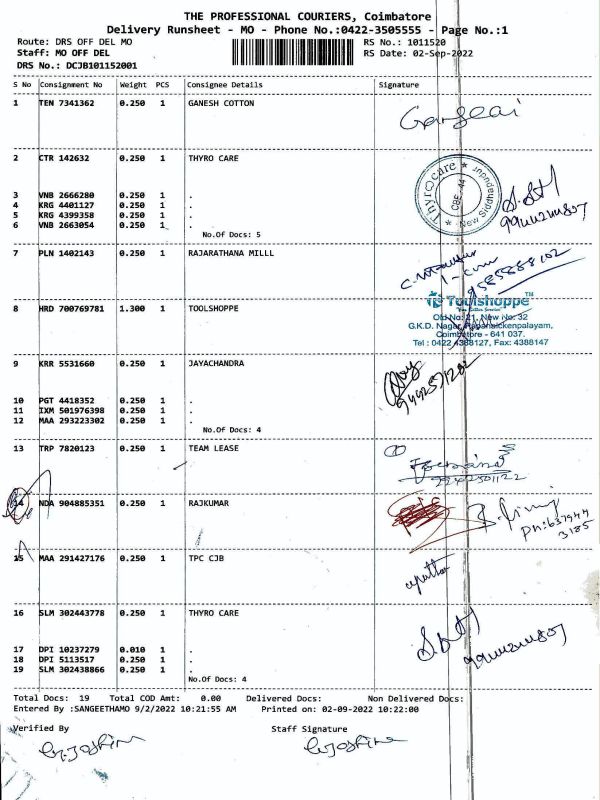 THE PROFESSIONAL COURIERS, Coimbatore
Delivery Runsheet - MO - Phone No.:0422-3505555 - Page No.:1
Route: DRS OFF DEL MO
Staff: MO OFF DEL
DRS No.: DCJB101152001
RS No.: 1011520
RS Date: 02-Sep-2022
S No Consignment No Weight PCS Consignee Details Signature
1 TEN 7341362 0.250 1 GANESH COTTON
2 CTR 142632 0.250 1 THYRO CARE
Thyrocare
CBE-44
New Siddhapudur
3 VNB 2666280 0.250 1 .
4 KRG 4401127 0.250 1 .
5 KRG 4399358 0.250 1 .
6 VNB 2663054 0.250 1 .
No.Of Docs: 5
7 PLN 1402143 0.250 1 RAJARATHANA MILLL
9585888102
8 HRD 700769781 1.300 1 TOOLSHOPPE
Toolshoppe™
Old No: 21, New No: 32
G.K.D. Nagar, Pappanaickenpalayam,
Coimbatore - 641 037.
Tel : 0422 4388127, Fax: 4388147
9 KRR 5531660 0.250 1 JAYACHANDRA
10 PGT 4418352 0.250 1 .
11 IXM 501976398 0.250 1 .
12 MAA 293223302 0.250 1 .
No.Of Docs: 4
13 TRP 7820123 0.250 1 TEAM LEASE
14 NDA 904885351 0.250 1 RAJKUMAR
15 MAA 291427176 0.250 1 TPC CJB
16 SLM 302443778 0.250 1 THYRO CARE
17 DPI 10237279 0.010 1 .
18 DPI 5113517 0.250 1 .
19 SLM 302438866 0.250 1 .
No.Of Docs: 4
Total Docs: 19 Total COD Amt: 0.00 Delivered Docs: Non Delivered Docs:
Entered By :SANGEETHAMO 9/2/2022 10:21:55 AM Printed on: 02-09-2022 10:22:00
Verified By Staff Signature